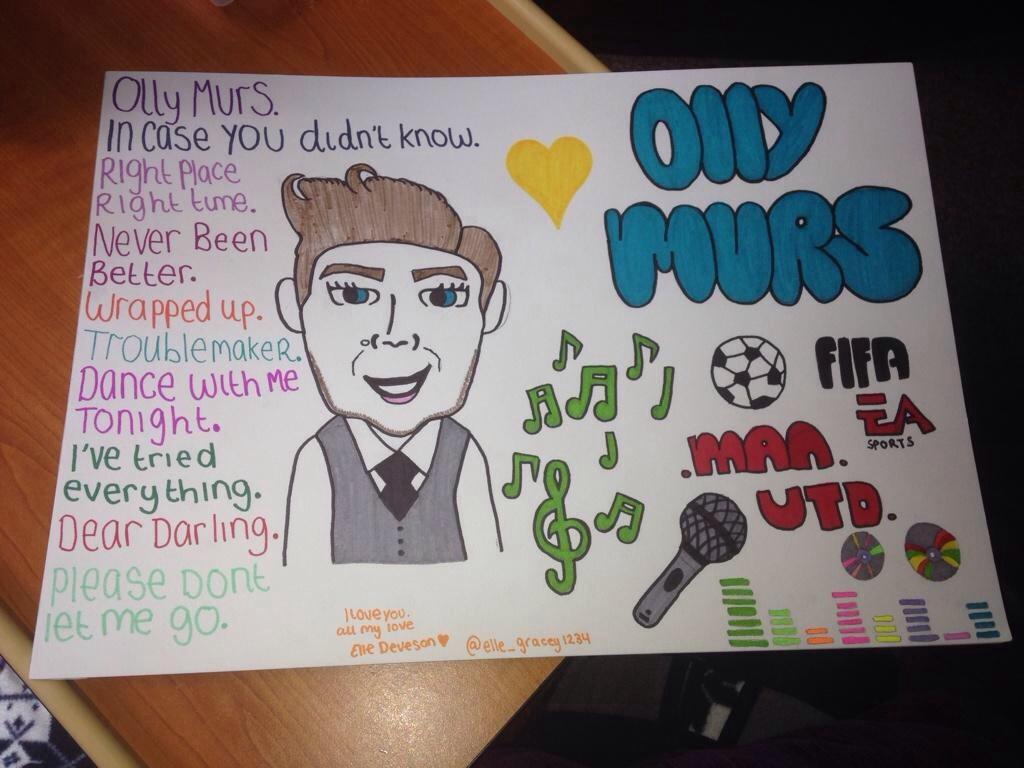 Olly Murs.
In case you didn't know.
Right Place
Right time.
Never Been
Better.
Wrapped up.
Troublemaker.
Dance with Me
Tonight.
I've tried
everything.
Dear Darling.
Please Dont
let me go.
I love you.
all my love
Elle Deveson
@elle_gracey1234
Olly
MURS
FIFA
EA
SPORTS
.MAN.
UTD.